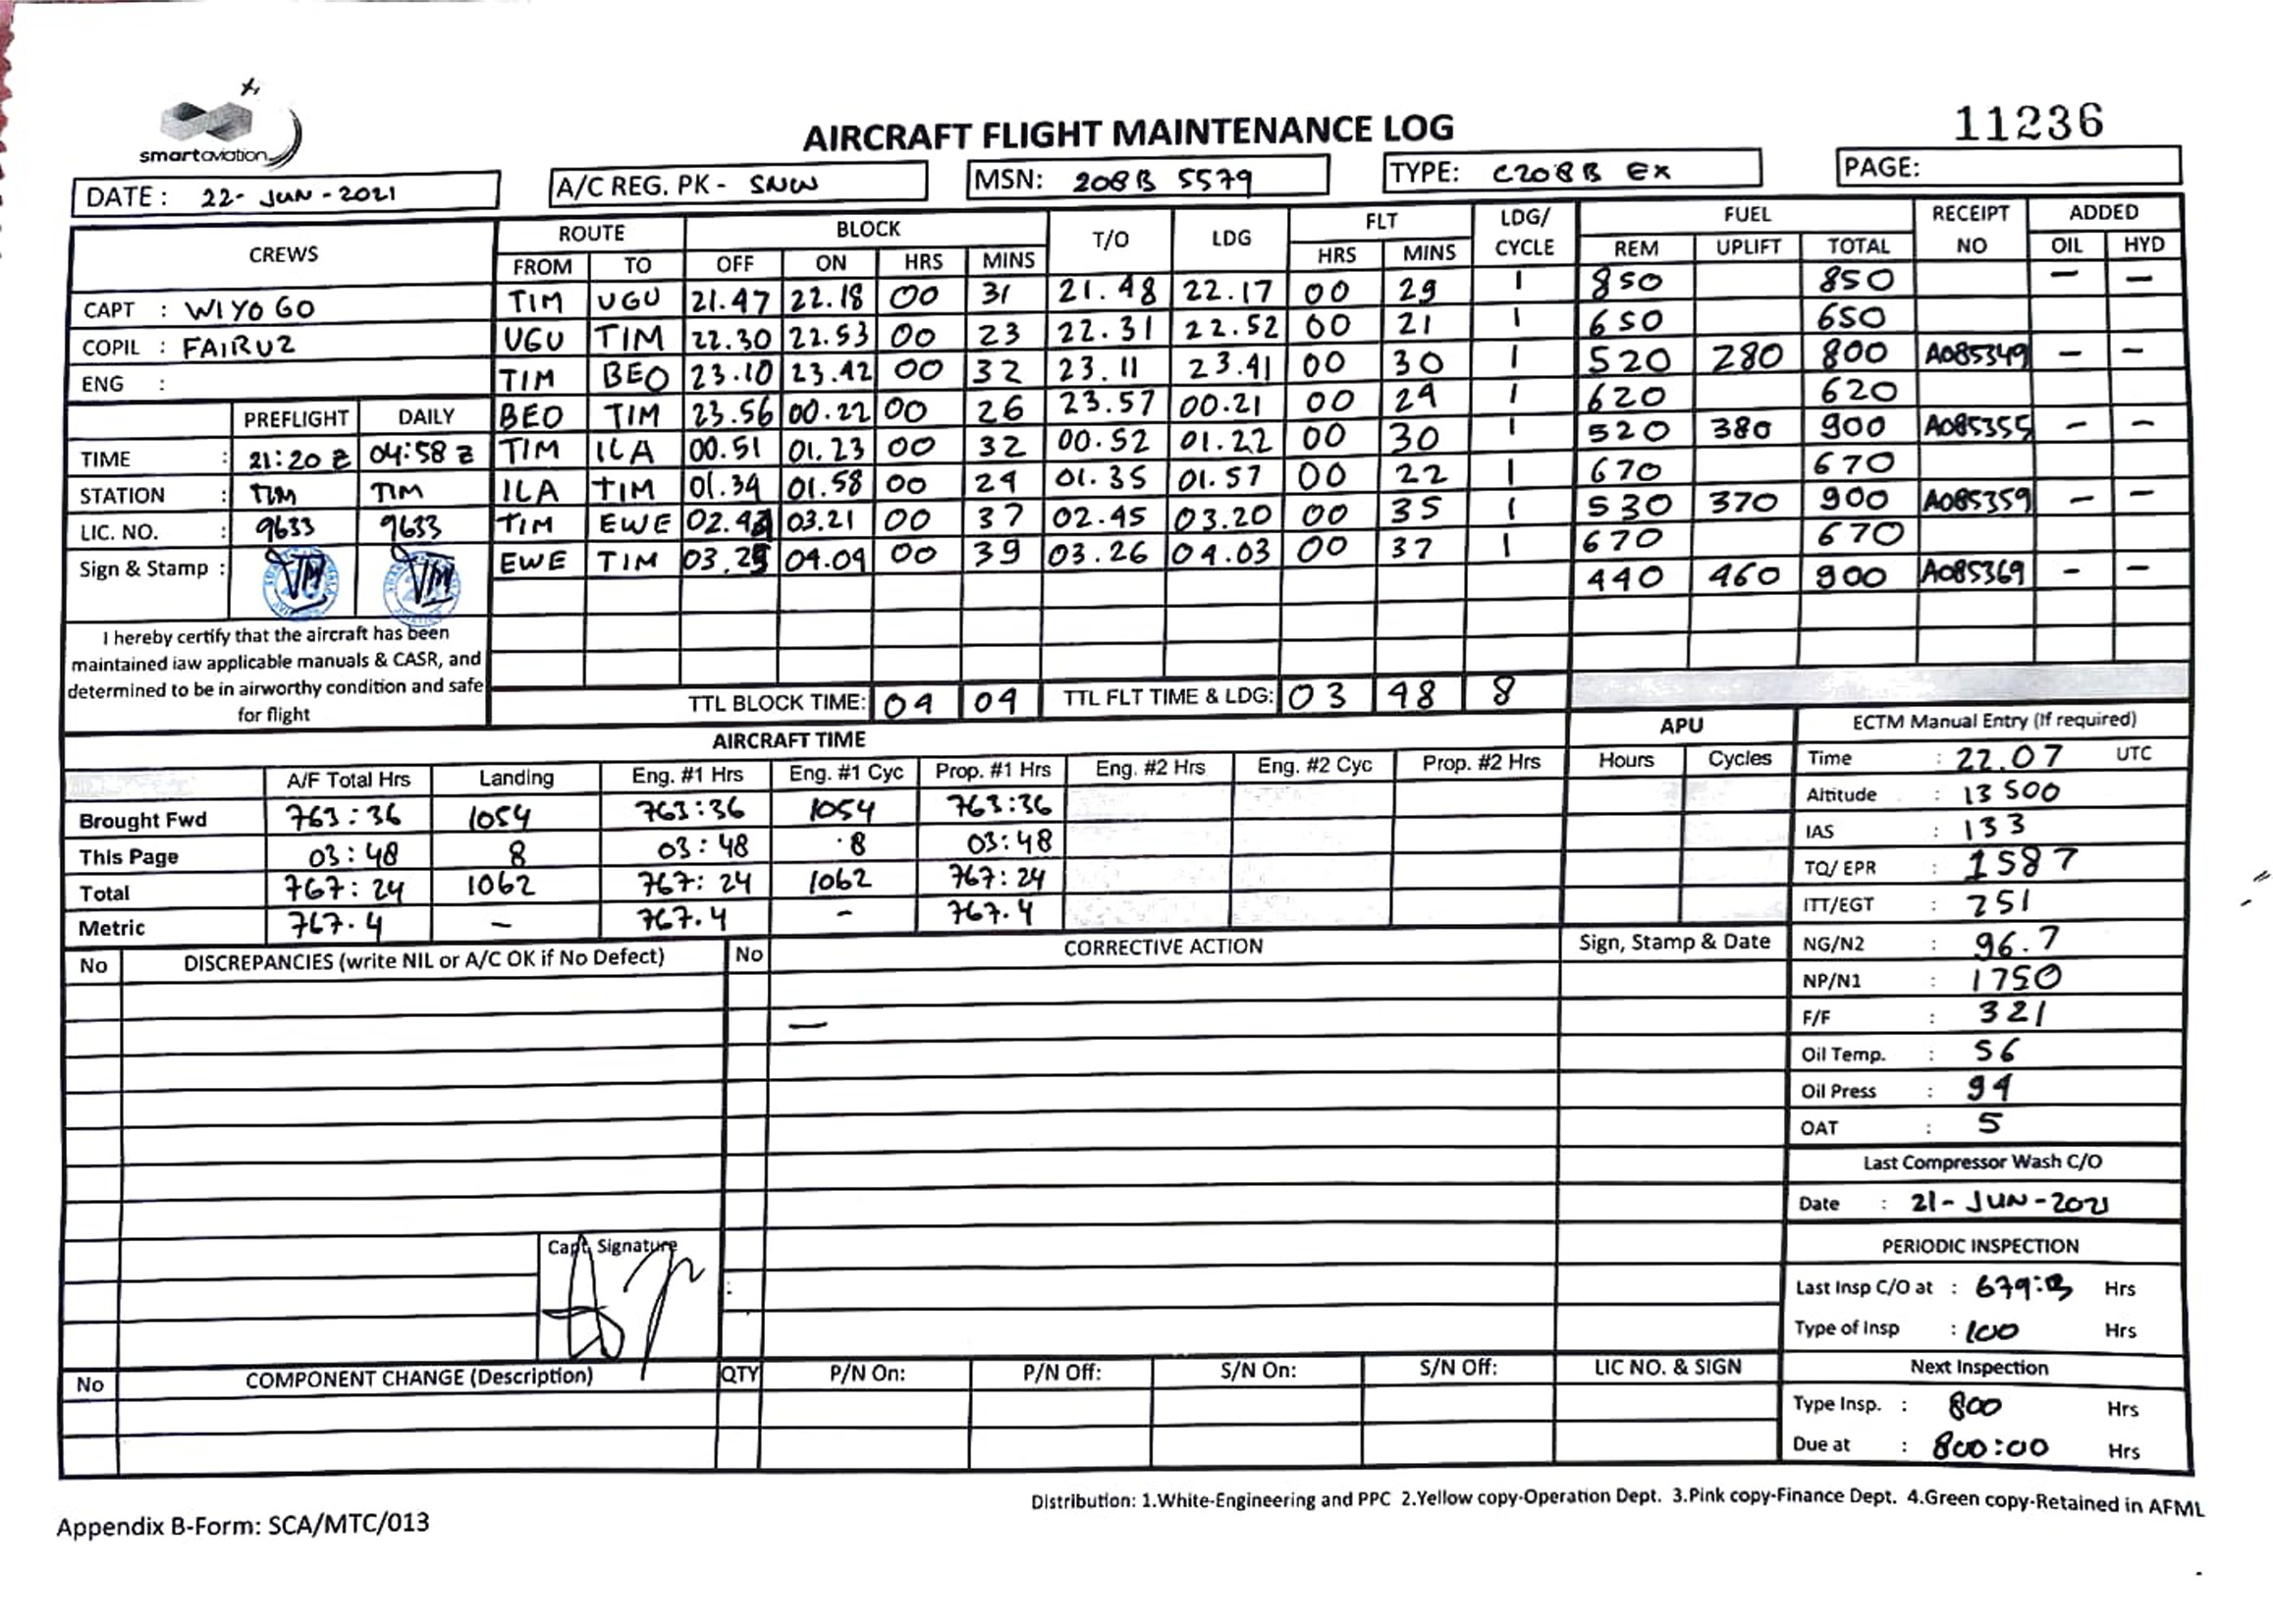 smartaviation
AIRCRAFT FLIGHT MAINTENANCE LOG
11236
DATE : 22- JUN -2021 A/C REG. PK - SNW MSN: 208B 5579 TYPE: C208B EX PAGE:
CREWS ROUTE BLOCK T/O LDG FLT LDG/ CYCLE FUEL RECEIPT NO ADDED
FROM TO OFF ON HRS MINS HRS MINS REM UPLIFT TOTAL OIL HYD
CAPT : WIYOGO
COPIL : FAIRUZ
ENG :
TIM UGU 21.47 22.18 00 31 21.48 22.17 00 29 1 850 850 — —
UGU TIM 22.30 22.53 00 23 22.31 22.52 00 21 1 650 650
TIM BEO 23.10 23.42 00 32 23.11 23.41 00 30 1 520 280 800 A085349 — —
BEO TIM 23.56 00.22 00 26 23.57 00.21 00 24 1 620 620
TIM ILA 00.51 01.23 00 32 00.52 01.22 00 30 1 520 380 900 A085355 — —
ILA TIM 01.34 01.58 00 24 01.35 01.57 00 22 1 670 670
TIM EWE 03.21 00 37 02.45 03.20 00 35 1 530 370 900 A085359 — —
EWE TIM 03.25 04.04 00 39 03.26 04.03 00 37 1 670 670
440 460 900 A085369 — —
PREFLIGHT DAILY
TIME : 21:20 Z 04:58 Z
STATION : TIM TIM
LIC. NO. : 9633 9633
Sign & Stamp :
I hereby certify that the aircraft has been
maintained iaw applicable manuals & CASR, and
determined to be in airworthy condition and safe
for flight
TTL BLOCK TIME: 04 04 TTL FLT TIME & LDG: 03 48 8
AIRCRAFT TIME APU
A/F Total Hrs Landing Eng. #1 Hrs Eng. #1 Cyc Prop. #1 Hrs Eng. #2 Hrs Eng. #2 Cyc Prop. #2 Hrs Hours Cycles
Brought Fwd 763:36 1054 763:36 1054 763:36
This Page 03:48 8 03:48 8 03:48
Total 767:24 1062 767:24 1062 767:24
Metric 767.4 — 767.4 — 767.4
ECTM Manual Entry (If required)
Time : 22.07 UTC
Altitude : 13500
IAS : 133
TQ/ EPR : 1587
ITT/EGT : 751
NG/N2 : 96.7
NP/N1 : 1750
F/F : 321
Oil Temp. : 56
Oil Press : 94
OAT : 5
Last Compressor Wash C/O
Date : 21- JUN -2021
PERIODIC INSPECTION
Last Insp C/O at : Hrs
Type of Insp : 100 Hrs
Next Inspection
Type Insp. : 800 Hrs
Due at : 800:00 Hrs
No DISCREPANCIES (write NIL or A/C OK if No Defect) No CORRECTIVE ACTION Sign, Stamp & Date
—
Capt. Signature
No COMPONENT CHANGE (Description) QTY P/N On: P/N Off: S/N On: S/N Off: LIC NO. & SIGN
Distribution: 1.White-Engineering and PPC 2.Yellow copy-Operation Dept. 3.Pink copy-Finance Dept. 4.Green copy-Retained in AFML
Appendix B-Form: SCA/MTC/013